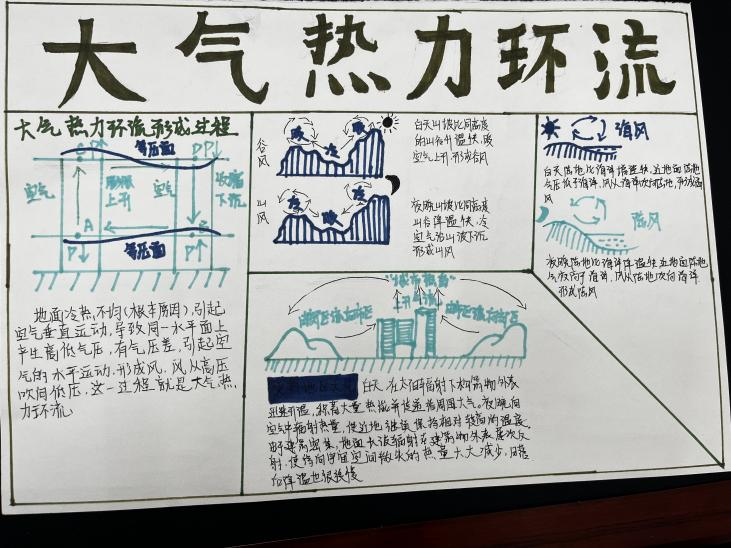 大气热力环流
大气热力环流形成过程
等压面
空气
膨胀
上升
空气
收缩
下沉
A
等压面
地面冷热不均(根本原因),引起
空气垂直运动,导致同一水平面上
产生高低气压,有气压差,引起空
气的水平运动,形成风,风从高压
吹向低压,这一过程就是大气热
力环流
谷
风
暖
冷
暖
白天山坡比同高度
的山谷升温快,暖
空气上升,形成谷风
山
风
冷
暖
冷
夜晚山坡比同高度
山谷降温快,冷
空气沿山坡下沉
形成山风
海风
白天陆地比海洋增温快,近地面陆地
气压低于海洋,风从海洋吹向陆地,形成海
风
陆风
夜晚陆地比海洋降温快,近地面陆地
气压高于海洋,风从陆地吹向海洋
形成陆风
"城市热岛"
上升气流
白天,在太阳辐射下构筑物外表
迅速升温,积蓄大量热能并传递给周围大气。夜晚向
空气中辐射热量,使近地继续保持相对较高的温度,
由于建筑密集,地面长波辐射在建筑物外表屡次反
射,使得向宇宙空间散失的热量大大减少,日落
后降温也很缓慢